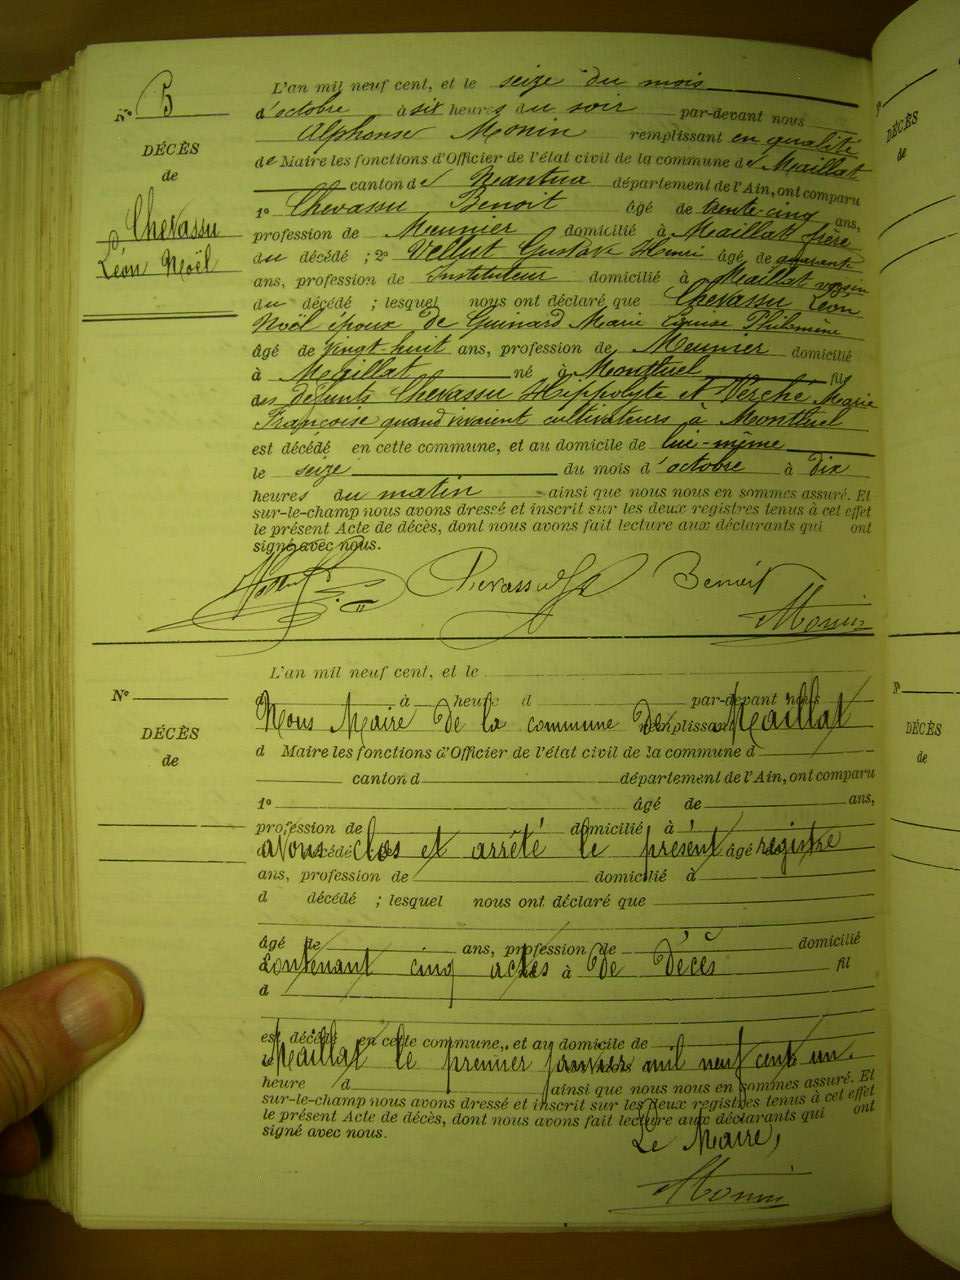 N° 5
DÉCÈS
de
Chevassu
Léon Noël
L'an mil neuf cent, et le seize du mois
d'octobre à six heures du soir par-devant nous
Alphonse Monin remplissant en qualité
de Maire les fonctions d'Officier de l'état civil de la commune de Maillat
canton de Nantua département de l'Ain, ont comparu
1° Chevassu Benoit âgé de trente-cinq ans,
profession de Meunier domicilié à Maillat frère
du décédé ; 2° Vellut Gustave Henri âgé de quarante
ans, profession de Instituteur domicilié à Maillat voisin
du décédé ; lesquel nous ont déclaré que Chevassu Léon
Noël époux de Guinard Marie Louise Philomène
âgé de vingt-huit ans, profession de Meunier domicilié
à Maillat né à Montluel fil
des défunts Chevassu Hippolyte et Verché Marie
Françoise quand vivaient cultivateurs à Montluel
est décédé en cette commune, et au domicile de lui-même
le seize du mois d'octobre à dix
heures du matin ainsi que nous nous en sommes assuré. Et
sur-le-champ nous avons dressé et inscrit sur les deux registres tenus à cet effet
le présent Acte de décès, dont nous avons fait lecture aux déclarants qui ont
signé avec nous.
Chevassu Benoit
Monin
N°
DÉCÈS
de
L'an mil neuf cent, et le
à heure d par-devant nous
Nous Maire de la commune de Maillat
remplissant
d Maire les fonctions d'Officier de l'état civil de la commune d
canton d département de l'Ain, ont comparu
1° âgé de ans,
profession de domicilié à
d décédé âgé de
avons clos et arrêté le présent registre
ans, profession de domicilié à
d décédé ; lesquel nous ont déclaré que
âgé de ans, profession de domicilié
contenant cinq actes de décès
à fil
d
est décédé en cette commune, et au domicile de
Maillat le premier janvier mil neuf cent un.
heure d ainsi que nous nous en sommes assuré. Et
sur-le-champ nous avons dressé et inscrit sur les deux registres tenus à cet effet
le présent Acte de décès, dont nous avons fait lecture aux déclarants qui ont
signé avec nous.
Le Maire,
Monin
DÉCÈS
de
DÉCÈS
de